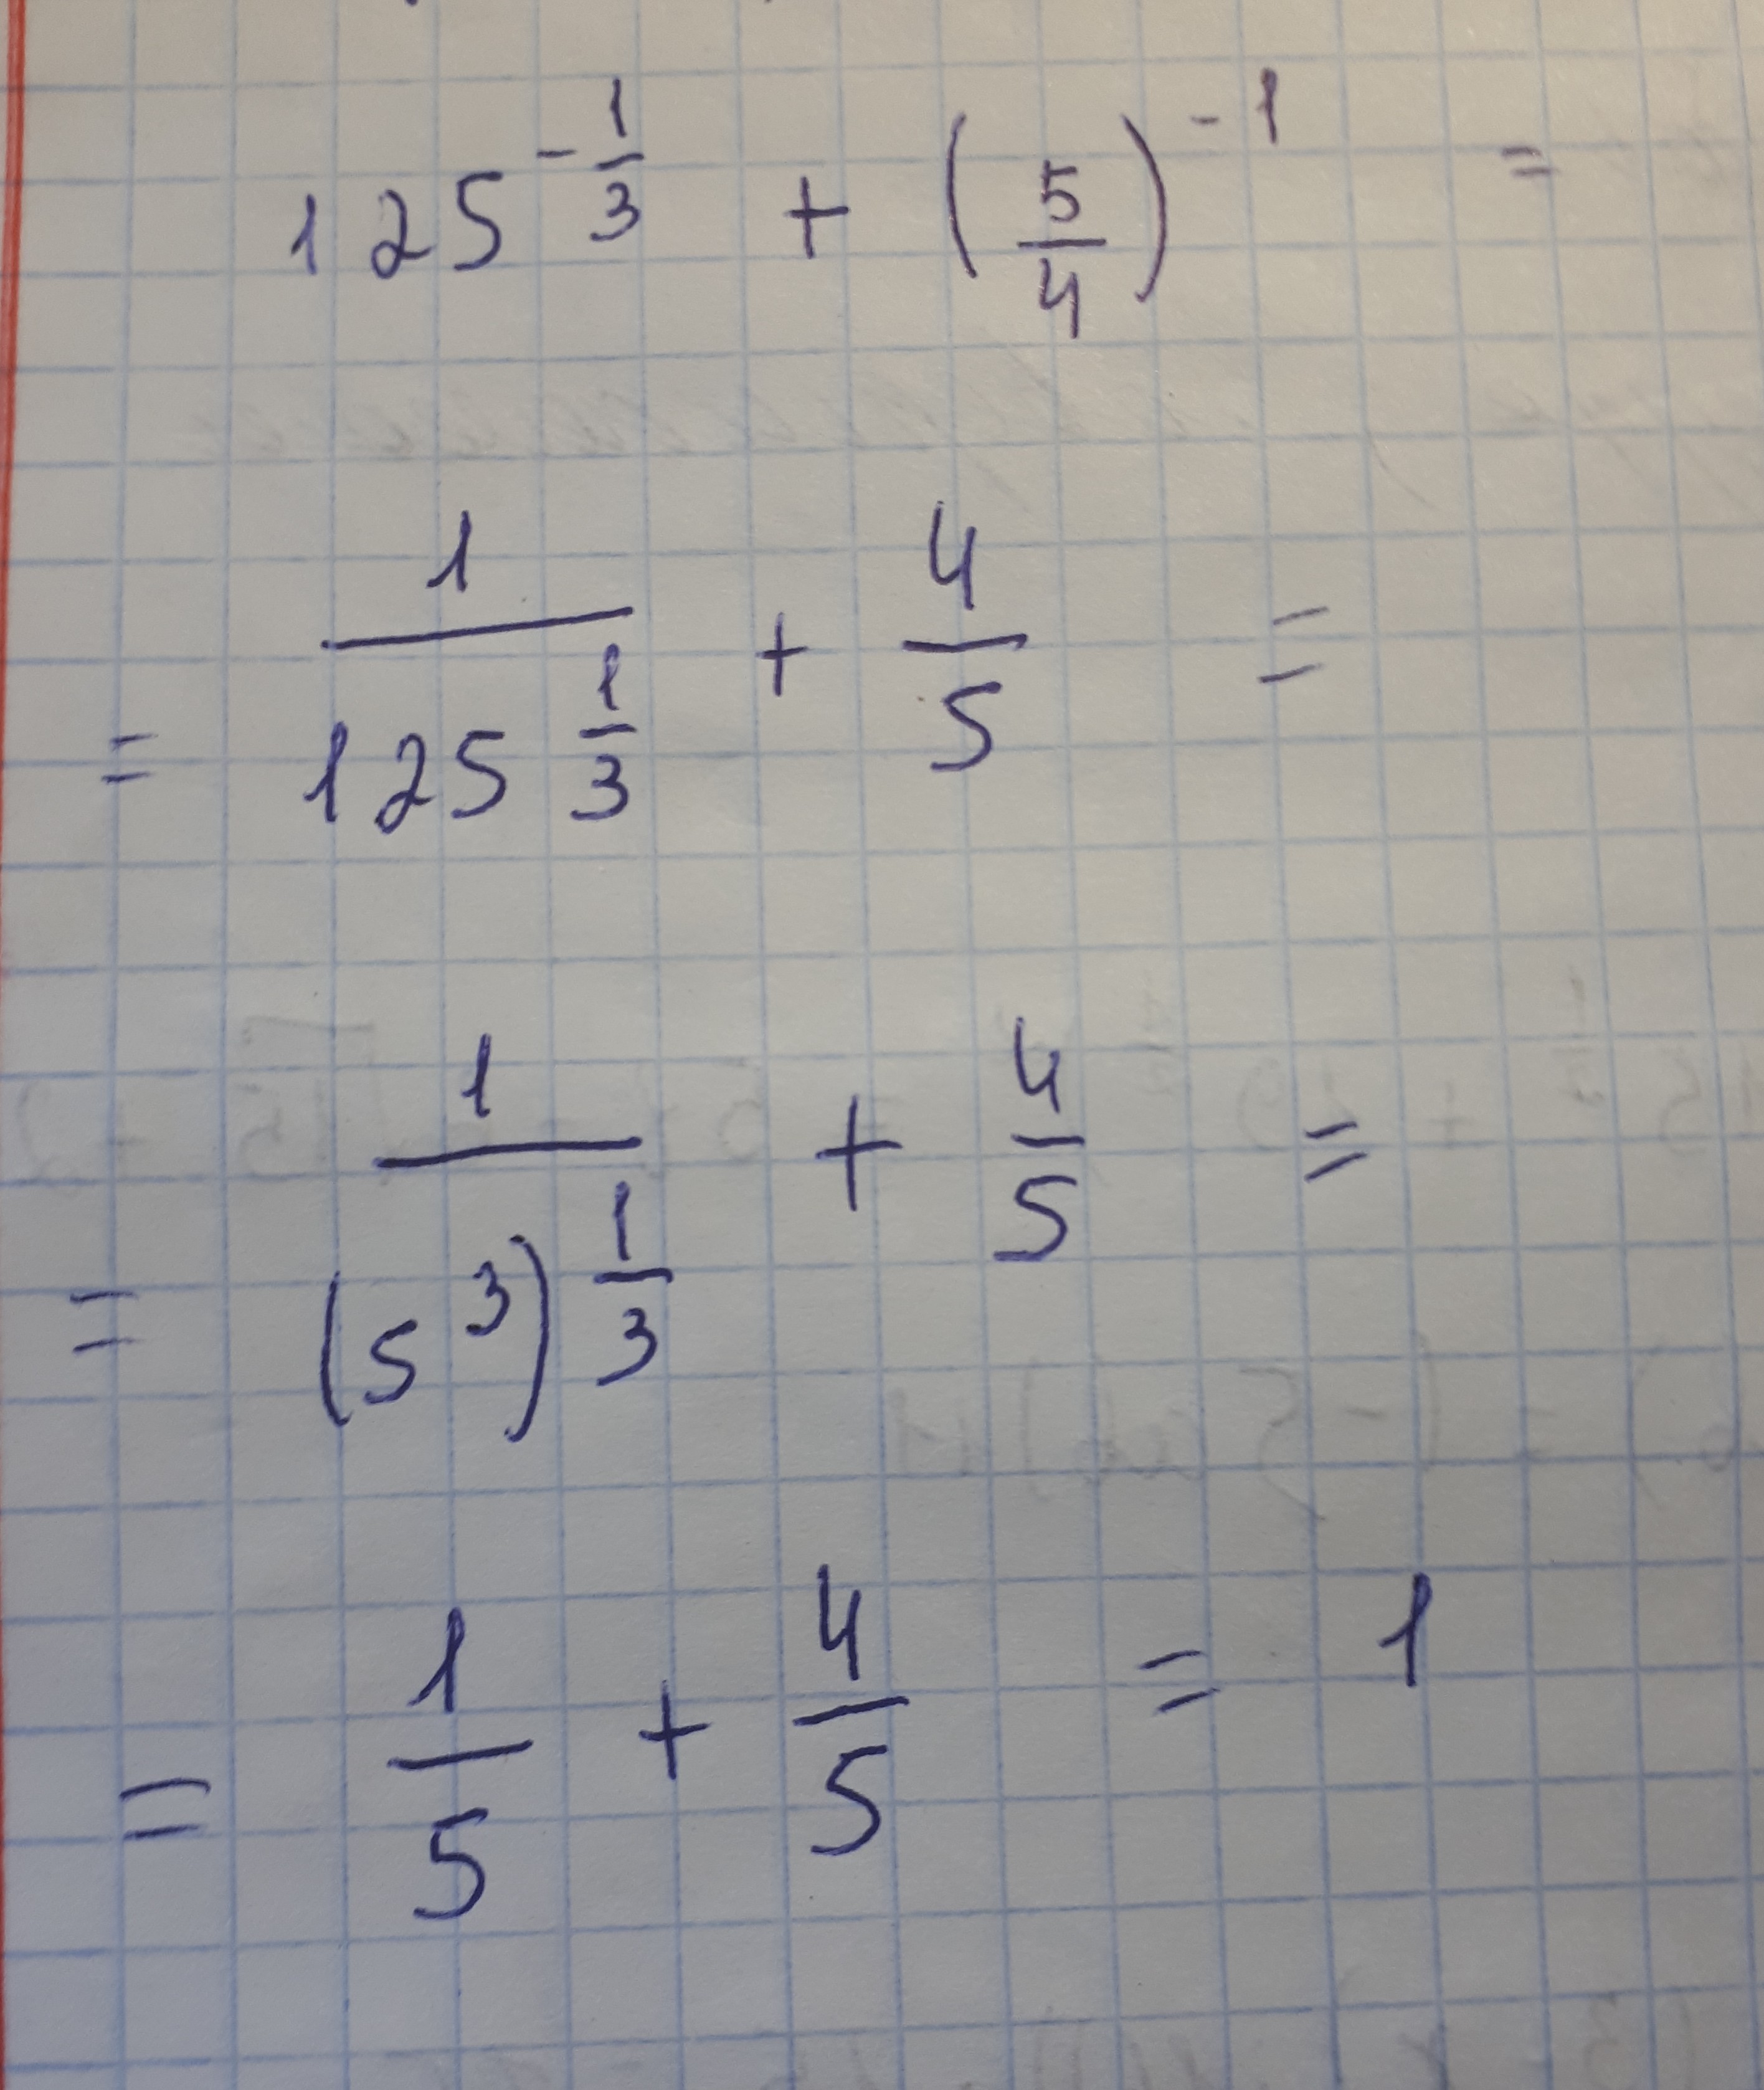 125^{-\frac{1}{3}} + (\frac{5}{4})^{-1} =
= \frac{1}{125^{\frac{1}{3}}} + \frac{4}{5} =
= \frac{1}{(5^3)^{\frac{1}{3}}} + \frac{4}{5} =
= \frac{1}{5} + \frac{4}{5} = 1